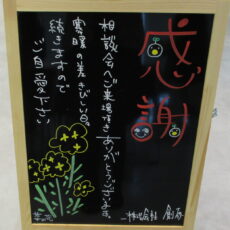 感謝
相談会へご来場頂き
ありがとうございます。
寒暖の差きびしい日
続きますので
ご自愛下さい
菜の花
株式会社 創